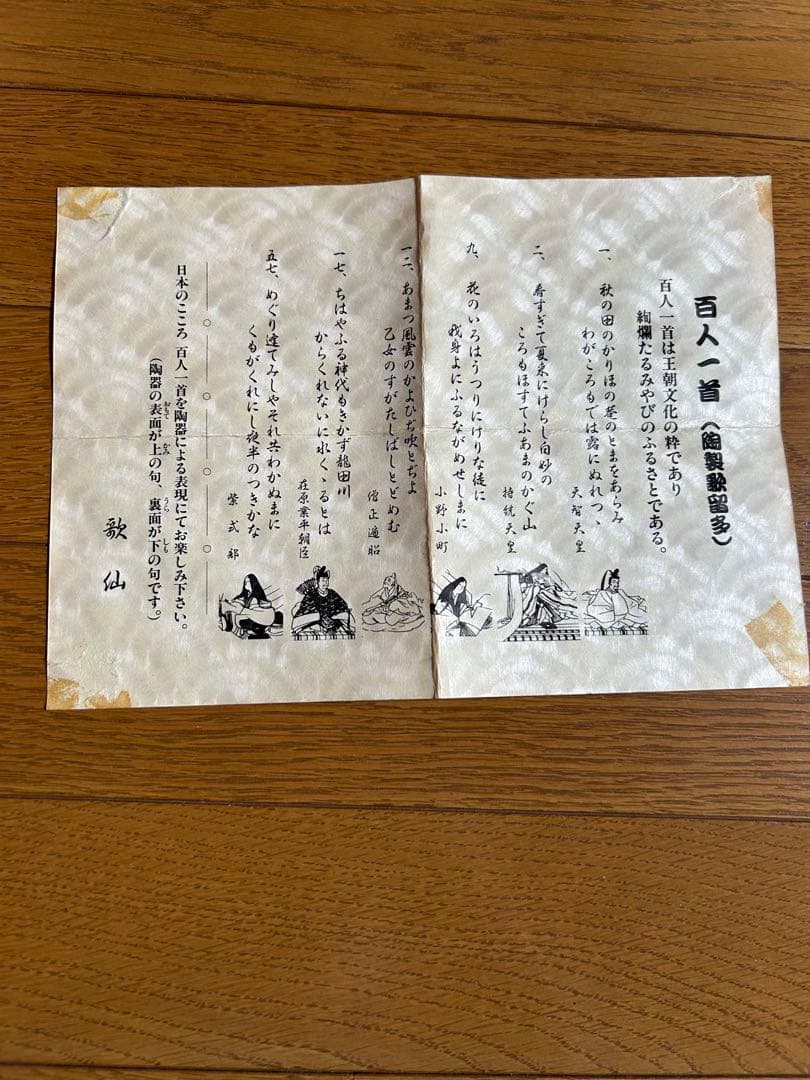 百人一首（陶製歌留多）
百人一首は王朝文化の粋であり
絢爛たるみやびのふるさとである。
一、秋の田のかりほの菴のとまをあらみ
わがころもでは露にぬれつゝ
天智天皇
二、春すぎて夏来にけらし白妙の
ころもほすてふあまのかぐ山
持統天皇
九、花のいろはうつりにけりな徒に
我身よにふるながめせしまに
小野小町
一二、あまつ風雲のかよひぢ吹とぢよ
乙女のすがたしばしとどめむ
僧正遍昭
一七、ちはやふる神代もきかず龍田川
からくれないに水くゝるとは
在原業平朝臣
五七、めぐり逢てみしやそれ共わかぬまに
くもがくれにし夜半のつきかな
紫式部
日本のこころ 百人一首を陶器による表現にてお楽しみ下さい。
（陶器の表面が上の句、裏面が下の句です。）
歌仙